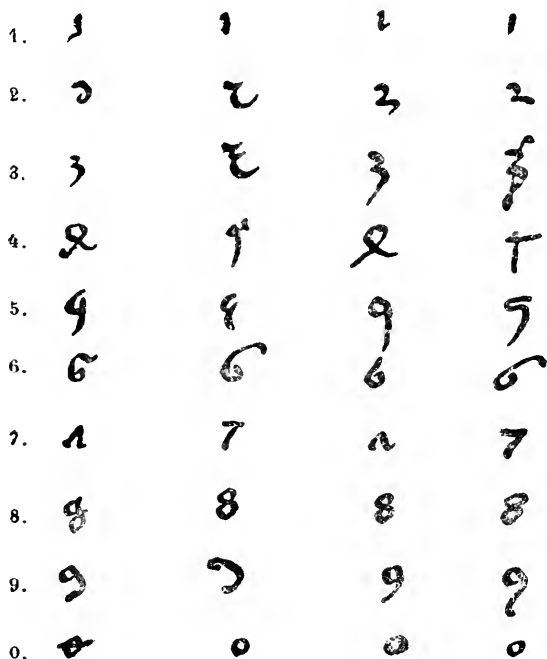 1. 1 1 1 1
2. 2 2 2 2
3. 3 3 3 3
4. 4 4 4 4
5. 5 5 5 5
6. 6 6 6 6
7. 7 7 7 7
8. 8 8 8 8
9. 9 9 9 9
0. 0 0 0 0